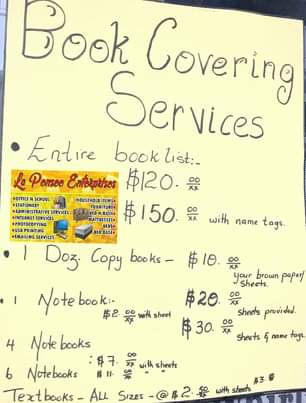 Book Covering
Services
• Entire book list:-
La Pensee Enterprises
•OFFICE N SCHOOL
•STATIONERY
•ADMINISTRATIVE SERVICES
•INTERNET SERVICES
•PHOTOCOPYING
•USA PRINTING
•EMAILING SERVICES
HOUSEHOLD ITEMS•
FURNITURE•
BED N BASE•
MATTRESSES•
BEDS•
BED BASE•
$120. 00/xx
$150. 00/xx with name tags.
• 1 Doz. Copy books - $10. 00/xx
your brown paper/
sheets.
• 1 Notebook:- $20. 00/xx
$2. 00/xx with sheet sheets provided.
$30. 00/xx
4 Note books Sheets & name tags.
: $7. 00/xx with sheets
6 Notebooks $11. 00/xx " "
Textbooks - ALL Sizes - @ $2. 50/xx with sheets $3.